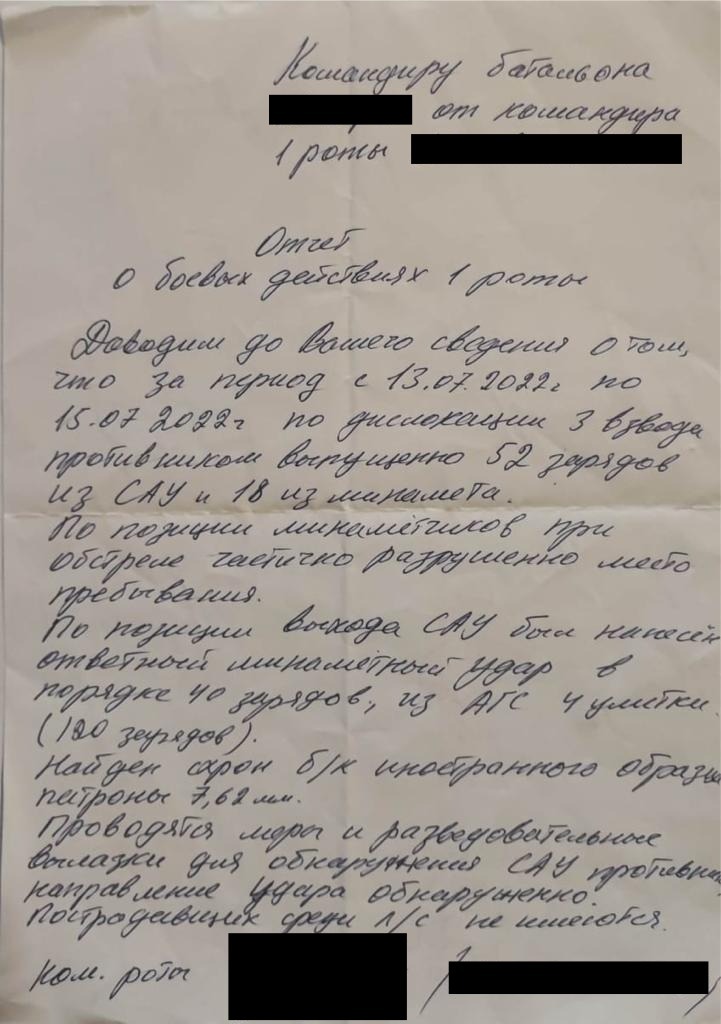 Командиру батальона
от командира
1 роты
Отчет
о боевых действиях 1 роты
Доводим до Вашего сведения о том,
что за период с 13.07.2022г по
15.07 2022г по дислокации 3 взвода
противником выпущенно 52 зарядов
из САУ и 18 из минамета.
По позиции минаметчиков при
обстреле частично разрушенно место
пребывания.
По позиции выхода САУ был нанесён
ответный минаметный удар в
порядке 40 зарядов, из АГС 4 улитки.
(120 зарядов).
Найден схрон б/к иностранного образца
патроны 7,62 мм.
Проводятся меры и разведовательные
вылазки для обнаружения САУ противника
направление удара обнаруженно.
Пострадавших среди л/с не имеются.
Ком. роты